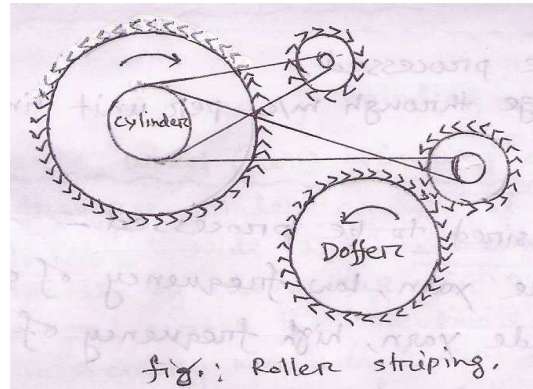 Cylinder
Doffer
fig.: Roller striping.